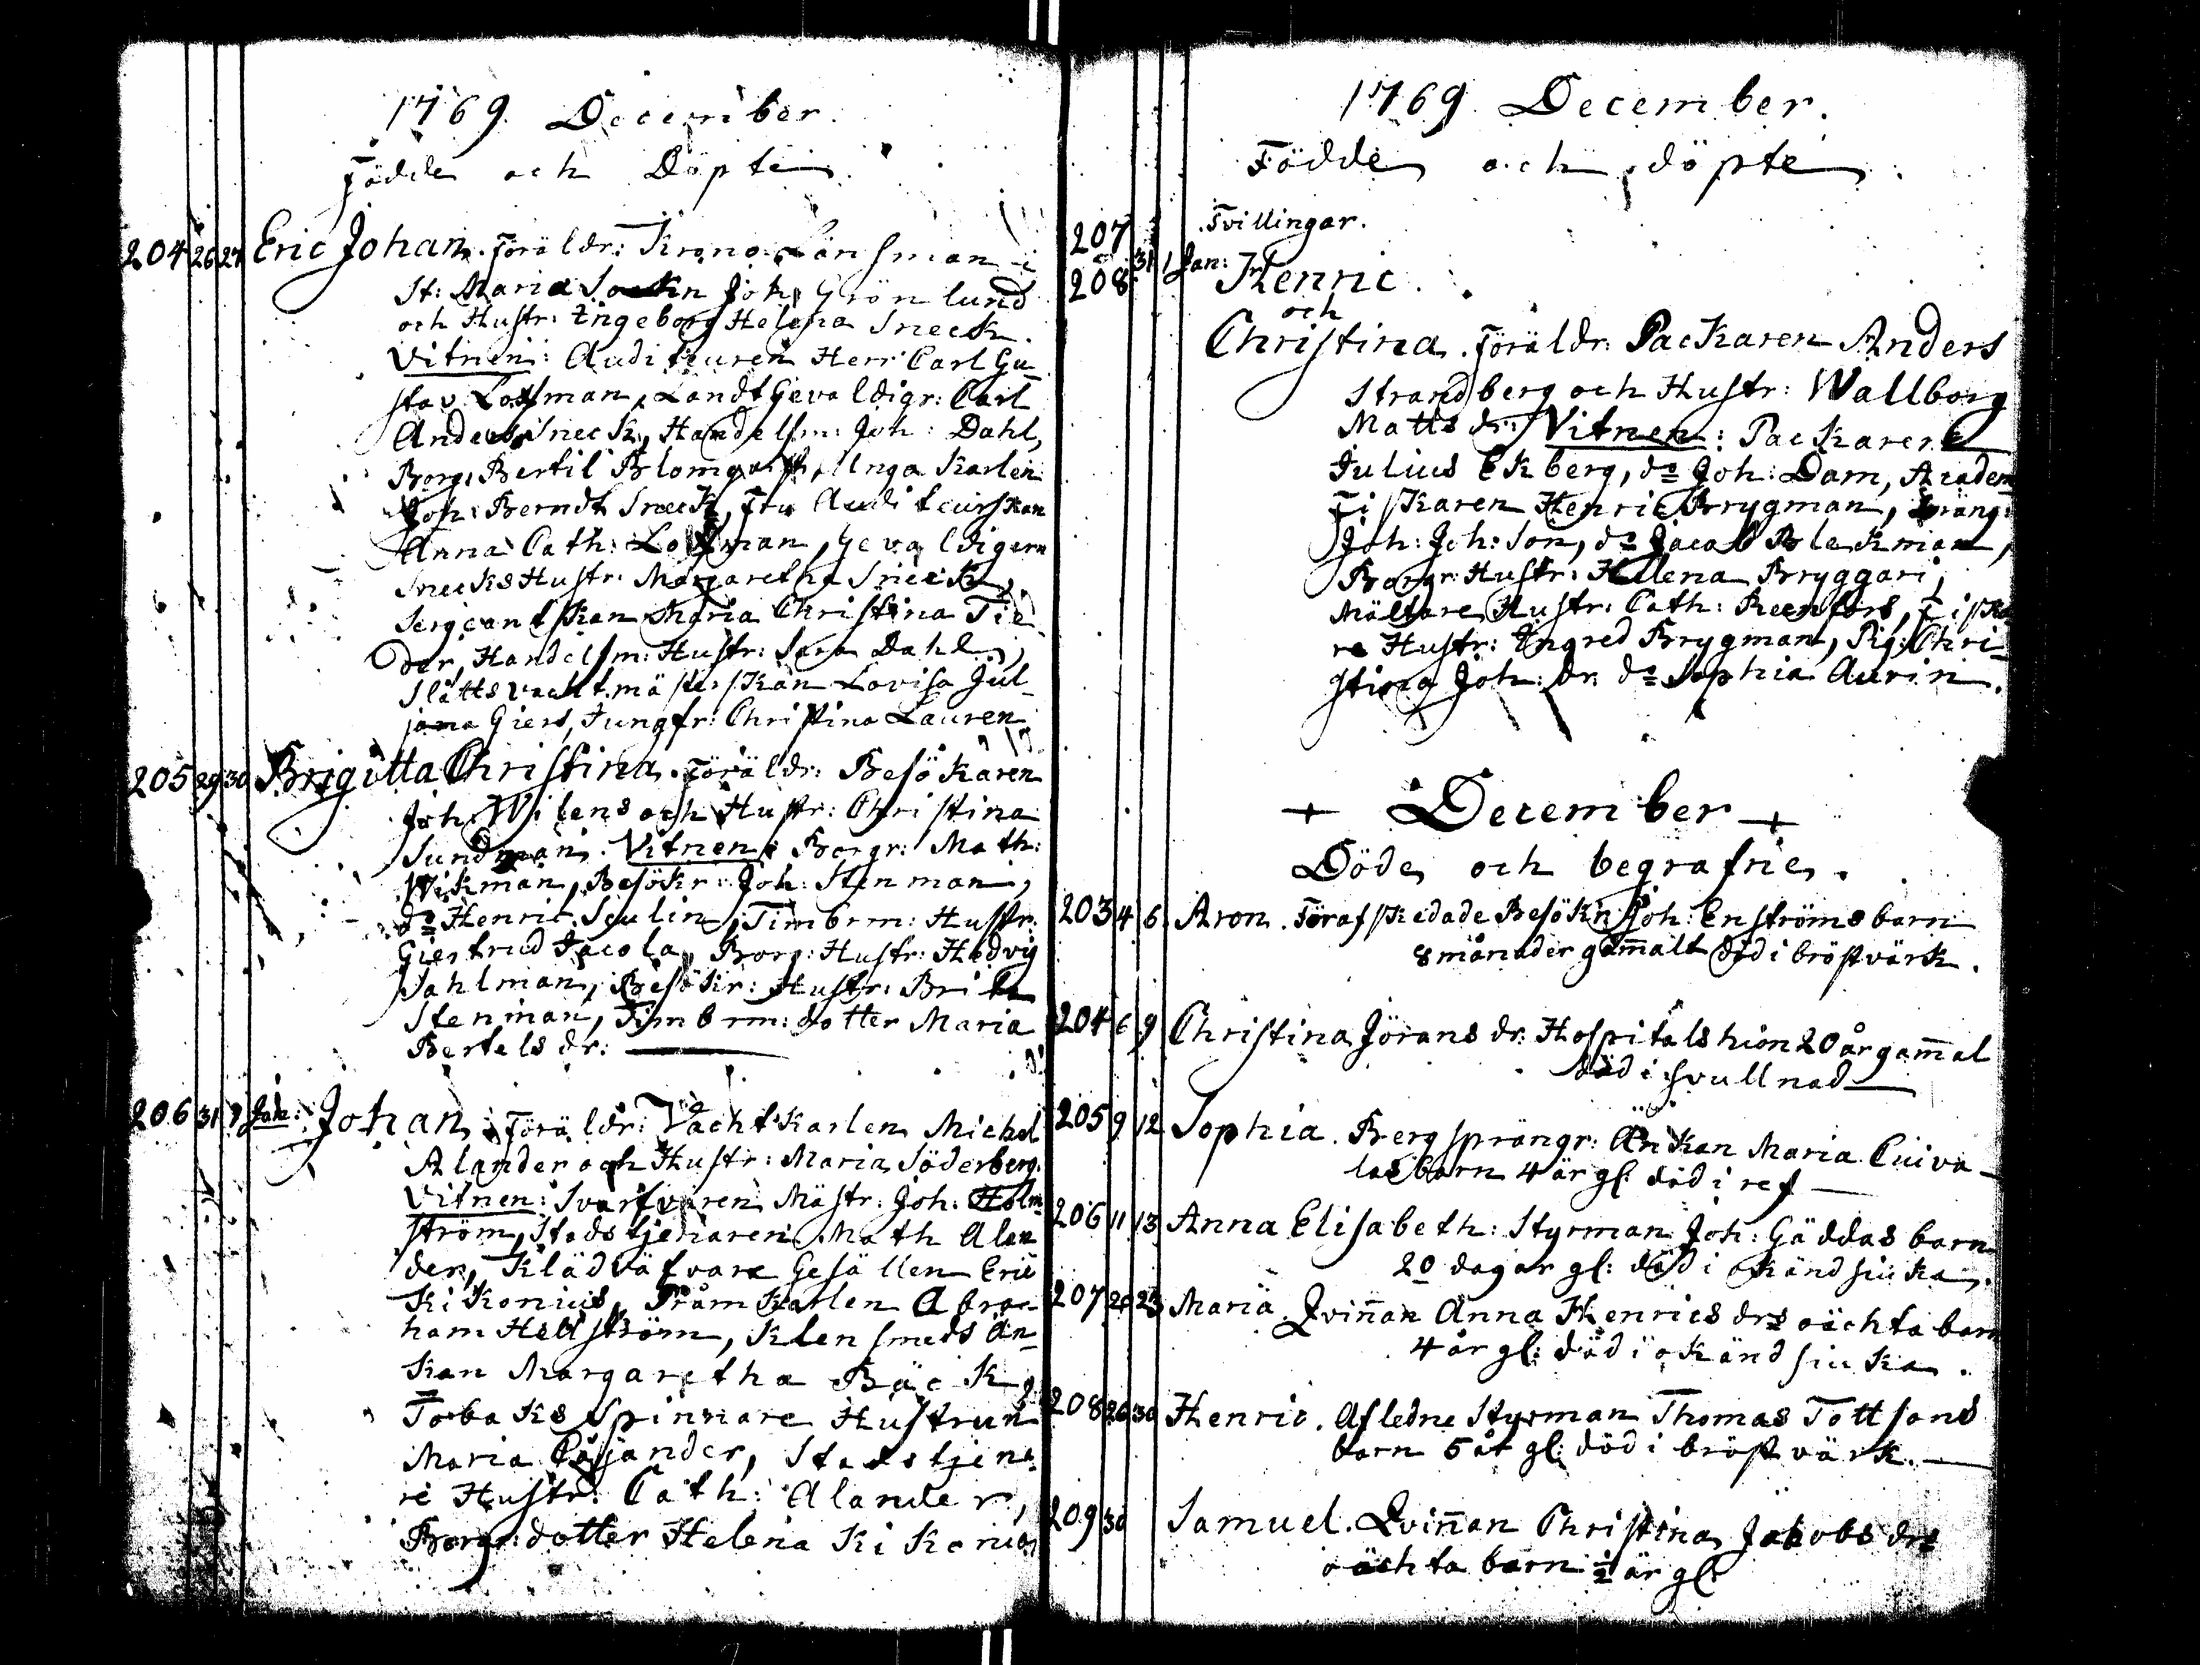 1769. December.
Födde och Döpte
204 26 27 Eric Johan. Föräldr: Krono Länsman i
St: Maria Sockn Joh: Grönlund
och Hustr: Ingeborg Helena Sneck.
Vitnen: Auditeuren Herr Carl Gu-
stav Lofman, Landt Gevaldigr: Carl
Anders Sneck, Handelsm: Joh: Dahl,
Borg: Bertil Blomqvist, Unga Karlen
Joh: Berndt Sneck, Fru Auditeurskan
Anna Cath: Lofman, Gevaldigern
Snecks Hustr: Margaretha Sneck,
Sergeantskan Maria Christina Tie
der, Handelsm: Hustr: Sara Dahl,
Slåttsvachtmästerskan Lovisa Jul-
jana Giers, Jungfr: Christina Lauren
205 29 30 Brigitta Christina. Föräldr: Besökaren
Joh: Wilens och Hustr: Christina
Sundman. Vitnen: Borgr: Math:
Wikman, Besökr: Joh: Stenman,
do Henric Seulin, Timbrm: Hustr:
Giertrud Jacola, Borg: Hustr: Hedvig
Sahlman, Besökr: Hustr: Brita
Stenman, Timbrm: dotter Maria
Bertels dr:
206 31 1 Jan: Johan. Föräldr: Vachtkarlen Michel
Alander och Hustr: Maria Söderberg.
Vitnen: Svarfvaren Mästr: Joh: Holm-
ström, Stadstjenaren Math Alan
der, Klädväfvare Gesällen Eric
Kikonius, Pråmkarlen Abra-
ham Hellström, Klensmeds än-
kan Margaretha Bäck,
Tobaks Spinnare Hustrun
Maria Cajander, Stadstjena
re Hustr: Cath: Alander,
Borgr: dotter Helena Kikonius
1769. December.
Födde och döpte.
207 Tvillingar.
208 31 1 Jan: Henric.
och
Christina. Föräldr: Packaren Anders
Strandberg och Hustr: Wallborg
Matts dr: Vitnen: Packaren
Julius Ekberg, do Joh: Dam, Academ
Fiskaren Henric Brygman, Dräng:
Joh: Joh: Son, do Jacob Bleckman,
Borgr: Hustr: Hellena Bryggari,
Mältare Hustr: Cath: Reenfors, Fiska
re Hustr: Ingred Brygman, Pig: Chri-
stina Joh: Dr: do Sophia Aurin.
+ December +
Döde och begrafne.
203 4 6 Aron. Förafskedade Besökn Joh: Enströms barn
8 månader gammalt död i bröstvärk.
204 6 9 Christina Jörans dr: Hospitals hion 20 år gammal
död i svullnad
205 9 12 Sophia. Bergsprängr: Änkan Maria Cuiva-
las barn 4 år gl: död i ref
206 11 13 Anna Elisabeth: Styrman Joh: Gäddas barn
20 dagar gl: död i okänd siuka.
207 20 23 Maria Qvinnan Anna Henrics drs oächta barn
4 år gl: död i okänd siuka.
208 26 30 Henric. Afledne Styrman Thomas Tottsons
barn 5 år gl: död i bröstvärk.
209 30 Samuel. Qvinnan Christina Jakobs drs
oächta barn ½ år gl: